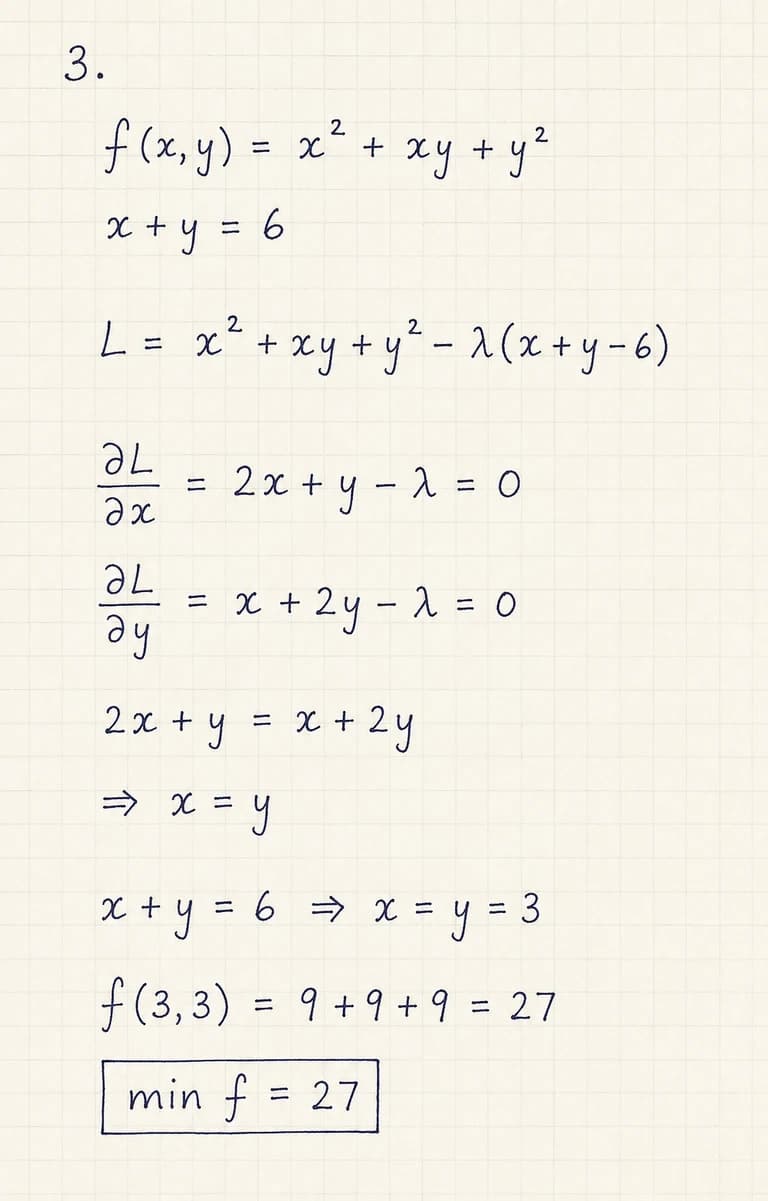 3.
f(x,y) = x² + xy + y²
x + y = 6
L = x² + xy + y² − λ(x + y − 6)
∂L/∂x = 2x + y − λ = 0
∂L/∂y = x + 2y − λ = 0
2x + y = x + 2y
⇒ x = y
x + y = 6 ⇒ x = y = 3
f(3,3) = 9 + 9 + 9 = 27
min f = 27